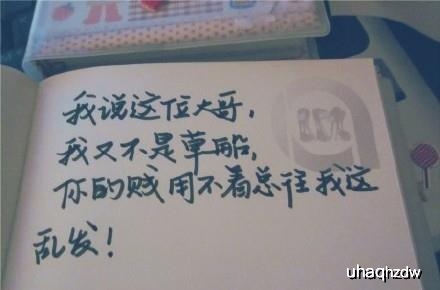 我说这位大哥，
我又不是草船，
你的贱用不着总往我这
乱发！
uhaqhzdw